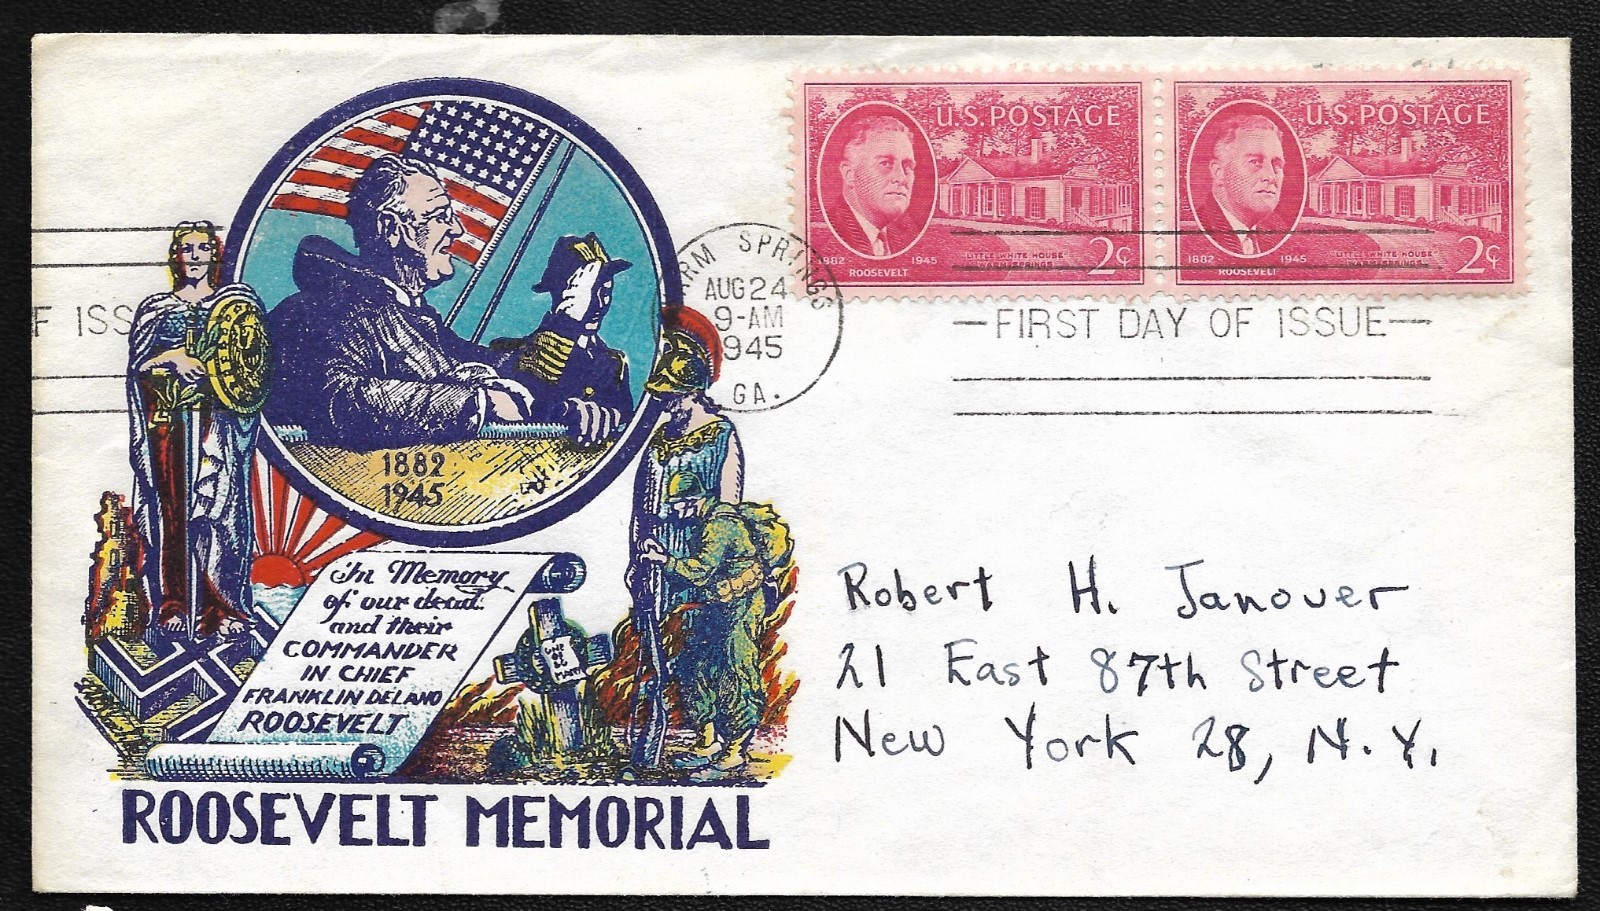 U.S. POSTAGE
1882 1945
ROOSEVELT
LITTLE WHITE HOUSE
WARM SPRINGS
2¢
U.S. POSTAGE
1882 1945
ROOSEVELT
LITTLE WHITE HOUSE
WARM SPRINGS
2¢
ARM SPRINGS
AUG 24
9-AM
1945
GA.
—FIRST DAY OF ISSUE—
F ISS
1882
1945
In Memory
of our dead
and their
COMMANDER
IN CHIEF
FRANKLIN DELANO
ROOSEVELT
ONE
OF
SO
MANY
ROOSEVELT MEMORIAL
Robert H. Janover
21 East 87th Street
New York 28, N.Y.